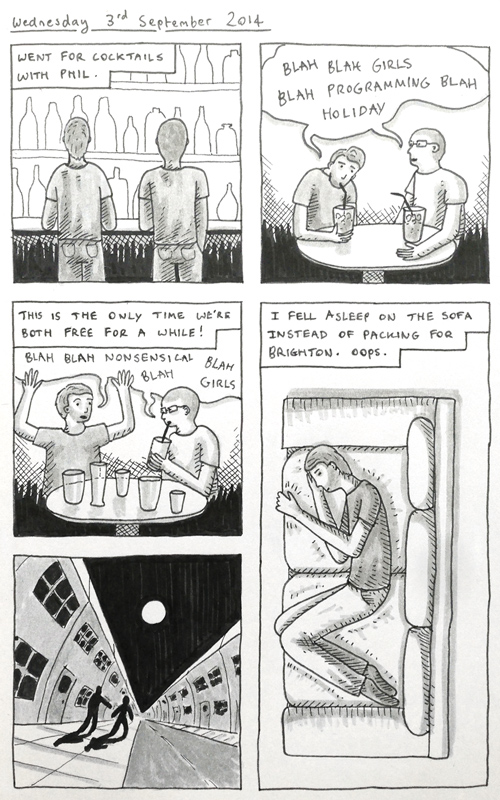 Wednesday 3rd September 2014
WENT FOR COCKTAILS
WITH PHIL.
BLAH BLAH GIRLS
BLAH PROGRAMMING BLAH
HOLIDAY
THIS IS THE ONLY TIME WE'RE
BOTH FREE FOR A WHILE!
BLAH BLAH NONSENSICAL
BLAH
BLAH
GIRLS
I FELL ASLEEP ON THE SOFA
INSTEAD OF PACKING FOR
BRIGHTON. OOPS.